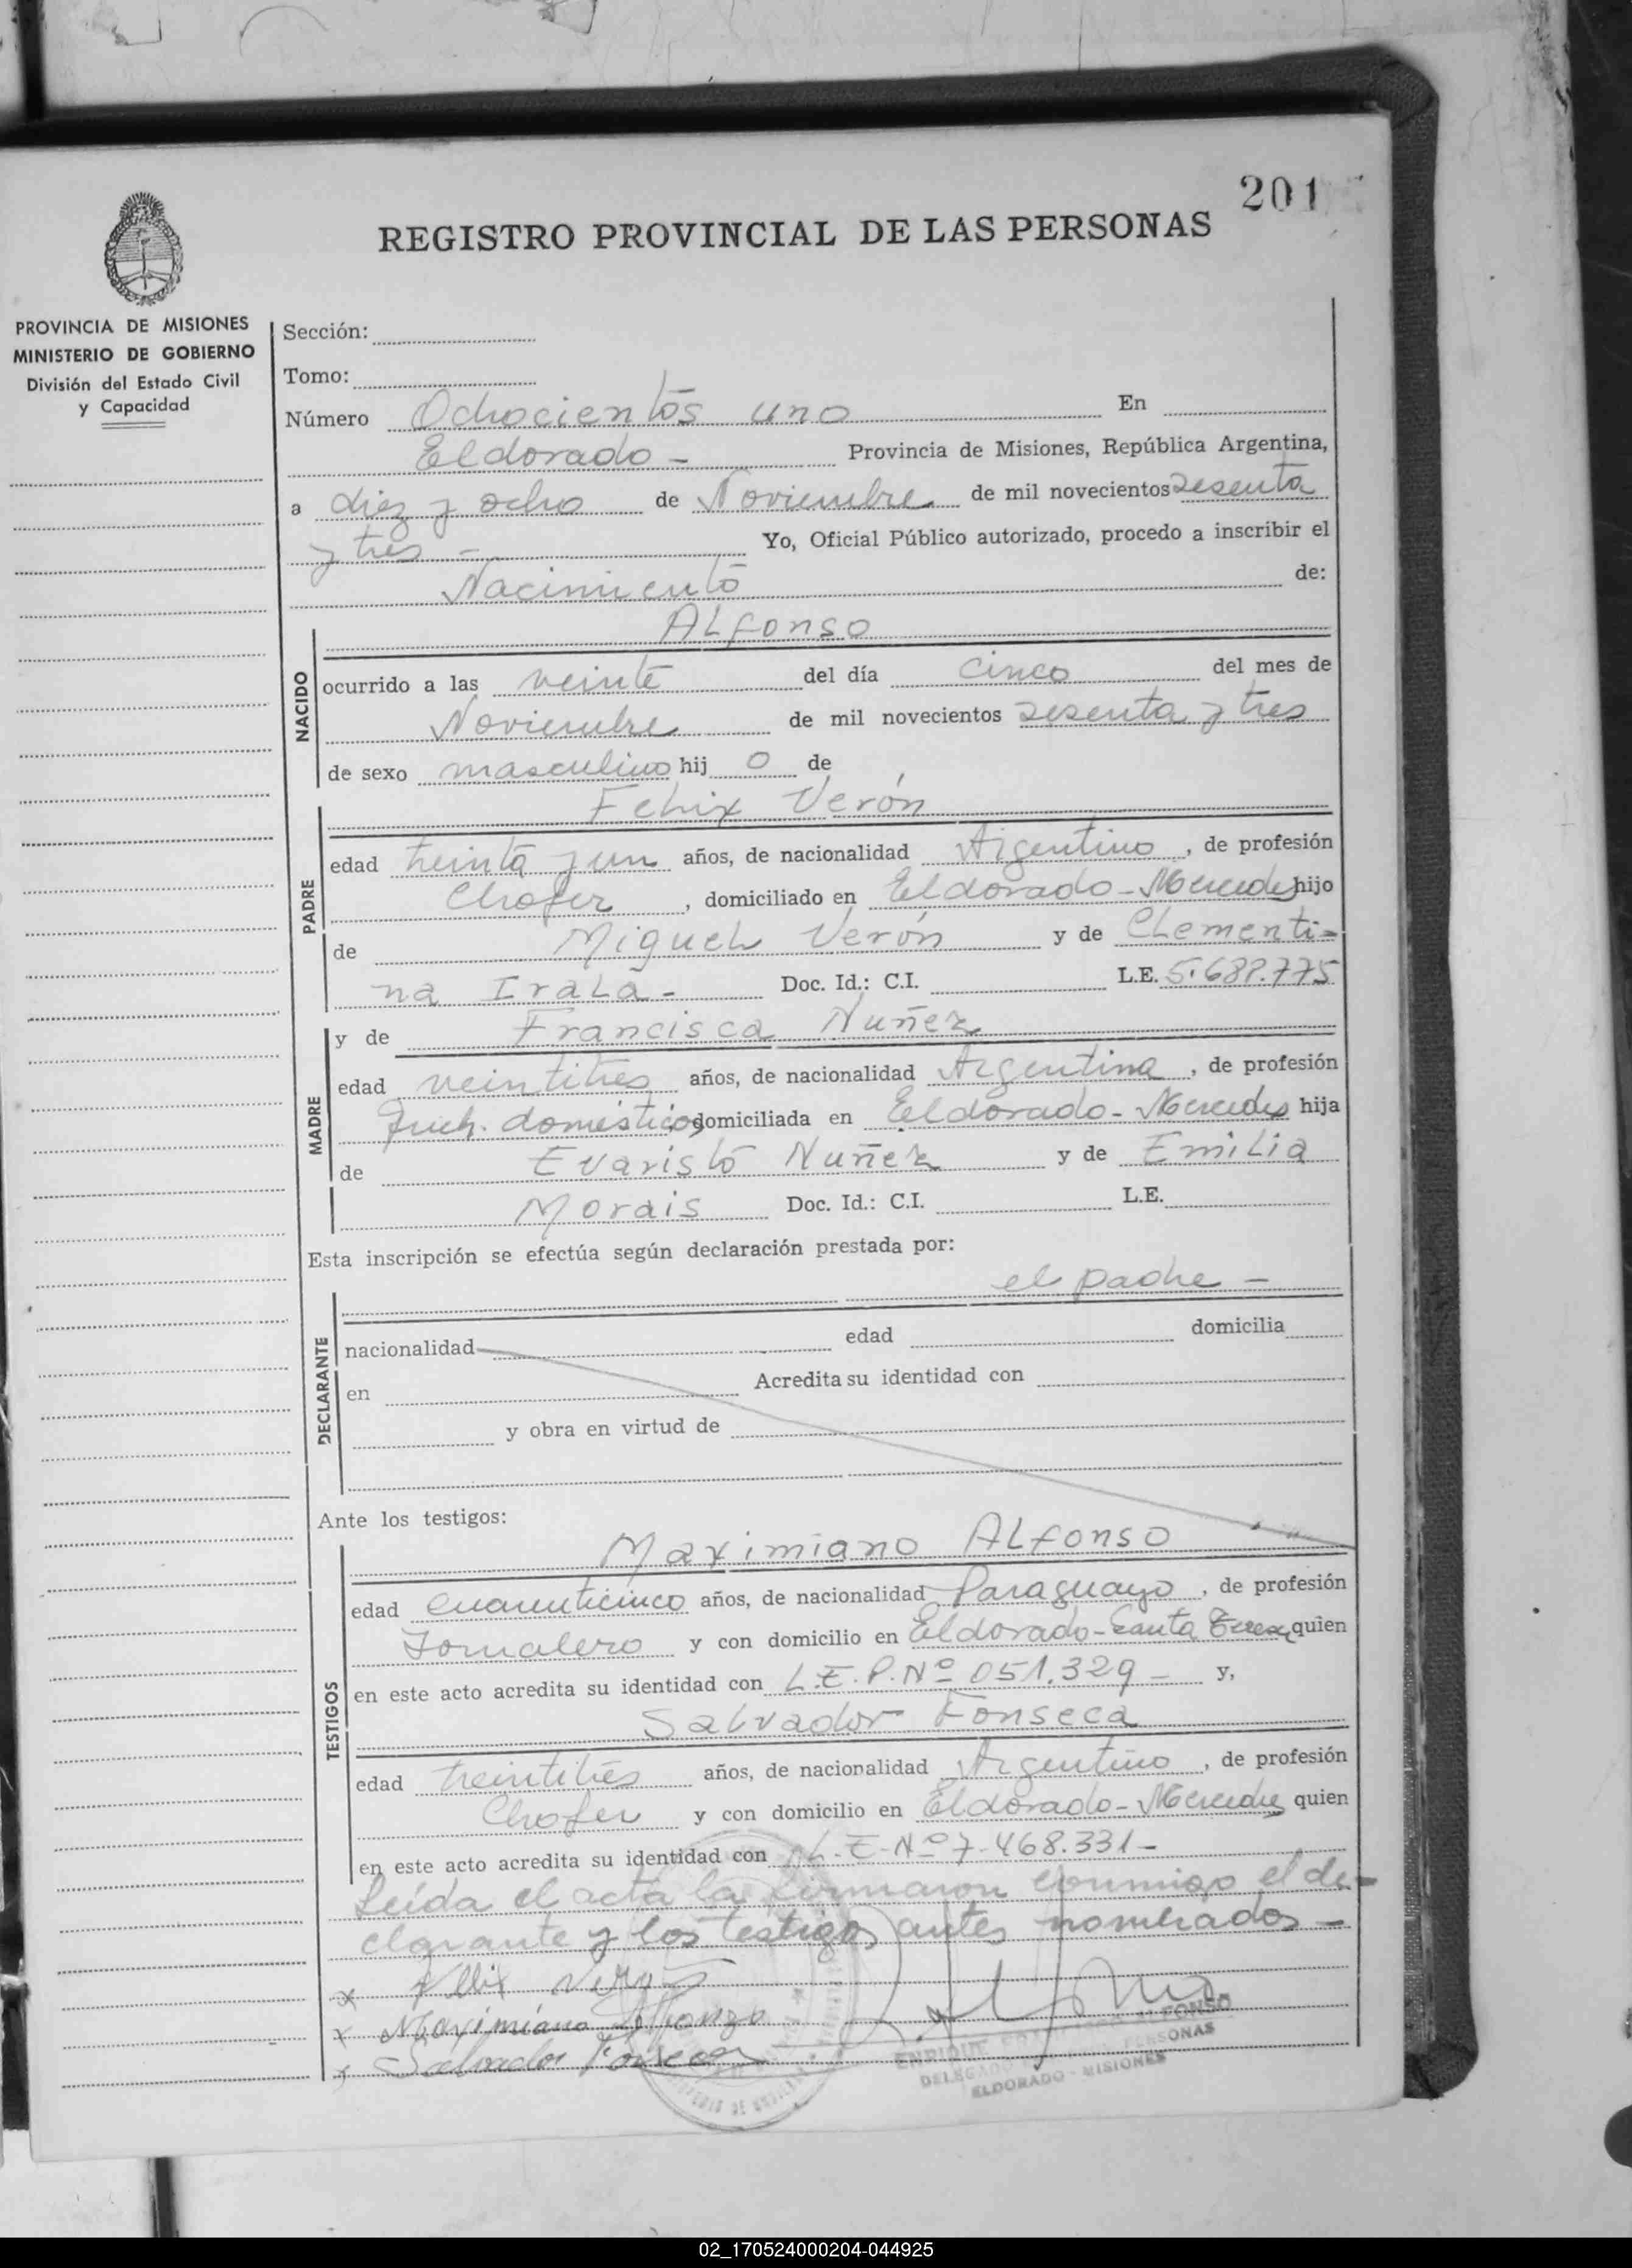 201
REGISTRO PROVINCIAL DE LAS PERSONAS
PROVINCIA DE MISIONES
MINISTERIO DE GOBIERNO
División del Estado Civil
y Capacidad
Sección:
Tomo:
Número Ochocientos uno En
Eldorado - Provincia de Misiones, República Argentina,
a diez y ocho de Noviembre de mil novecientos sesenta
y tres - Yo, Oficial Público autorizado, procedo a inscribir el
Nacimiento de:
NACIDO
Alfonso
ocurrido a las veinte del día cinco del mes de
Noviembre de mil novecientos sesenta y tres
de sexo masculino hij o de
PADRE
Felix Verón
edad treinta y un años, de nacionalidad Argentino, de profesión
Chofer, domiciliado en Eldorado - Mercedes hijo
de Miguel Verón y de Clementi-
na Irala - Doc. Id.: C.I. L.E.
MADRE
y de Francisca Nuñez
edad veintitres años, de nacionalidad Argentina, de profesión
domesticos domiciliada en Eldorado - Mercedes hija
de Evaristo Nuñez y de Emilia
Morais Doc. Id.: C.I. L.E.
Esta inscripción se efectúa según declaración prestada por:
DECLARANTE
el padre -
nacionalidad edad domicilia
en Acredita su identidad con
y obra en virtud de
Ante los testigos:
TESTIGOS
Maximiano Alfonso
edad cuarenticinco años, de nacionalidad Paraguayo, de profesión
Jornalero y con domicilio en Eldorado - Santa Teresa quien
en este acto acredita su identidad con L.E.P. Nº 051.329 - y,
Salvador Fonseca
edad treintitres años, de nacionalidad Argentino, de profesión
Chofer y con domicilio en Eldorado - Mercedes quien
en este acto acredita su identidad con L.E. Nº 7.468.331 -
Leída el acta la firmaron conmigo el de-
clarante y los testigos antes nombrados -
x Felix Veron
x Maximiano Alfonzo
x Salvador Fonseca
ENRIQUE ALFONSO
PERSONAS
ELDORADO - MISIONES
02_170524000204-044925